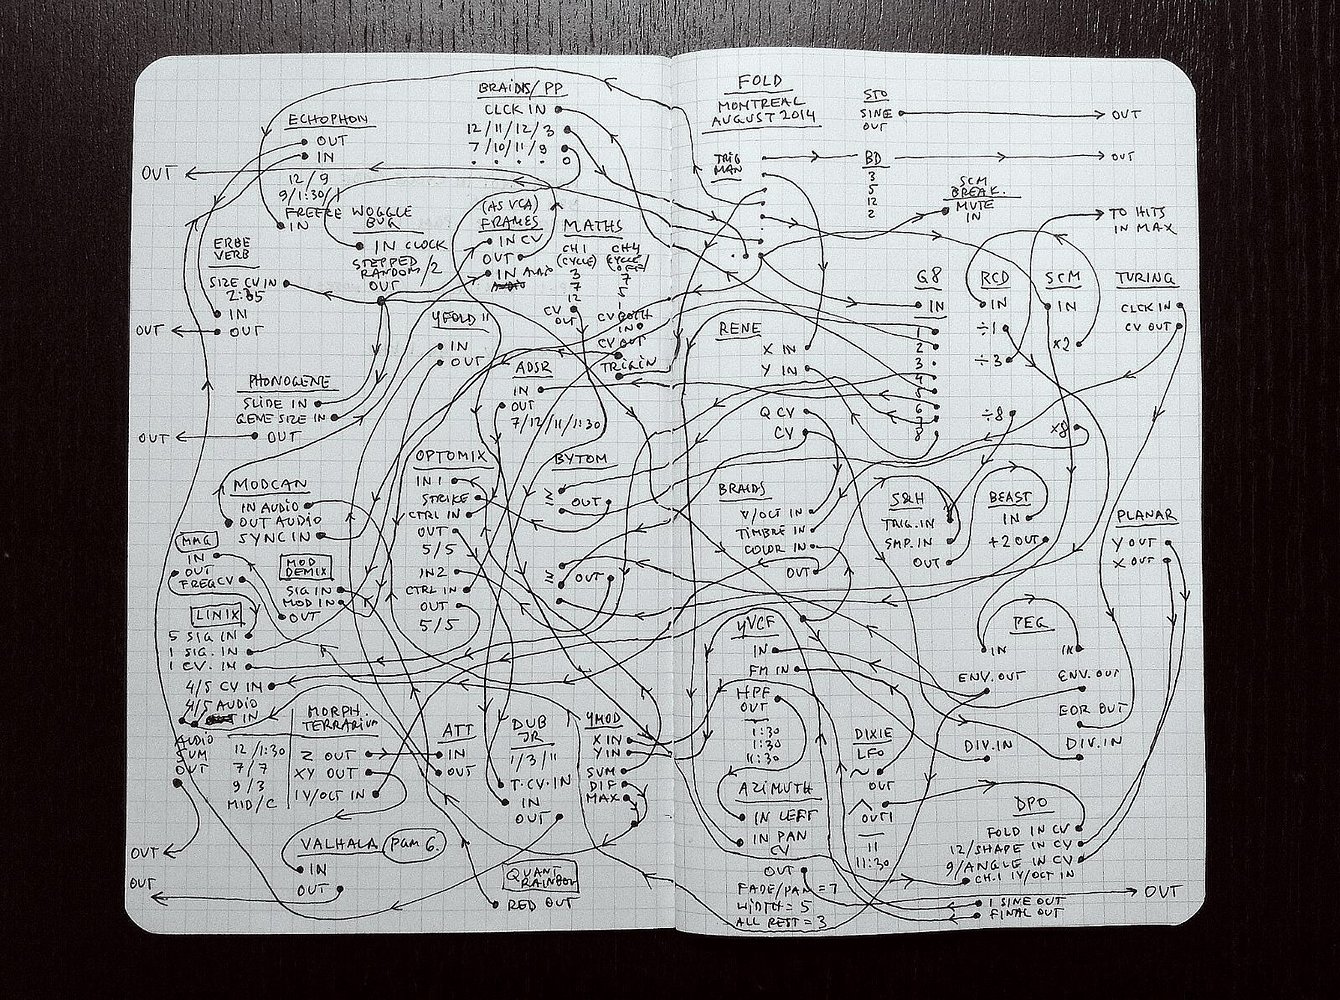 BRAINS/PP
CLCK IN
12/11/12/3
7/10/11/9
ECHOPHON
OUT
IN
12/9
9/1:30/1
FREEZE
IN
OUT
WOGGLE
BUG
IN CLOCK
STEPPED
RANDOM/2
OUT
(AS VCA)
FRAMES
IN CV
OUT
IN AUDIO
MATHS
CH1
(CYCLE)
3
7
12
CV
OUT
CH4
(CYCLE/
OFF)
7
5
1
CV BOTH
IN
CV OUT
TRIG IN
ERBE
VERB
SIZE CV IN
IN
OUT
OUT
YFOLD II
IN
OUT
ADSR
IN
OUT
7/12/11/1:30
PHONOGENE
SLIDE IN
GENE SIZE IN
OUT
OUT
OPTOMIX
IN 1
STRIKE
CTRL IN
OUT
5/5
IN2
CTRL IN
OUT
5/5
BYTOM
Σ
OUT
Σ
OUT
MODCAN
IN AUDIO
OUT AUDIO
SYNC IN
MMG
IN
OUT
FREQ CV
MOD
DEMIX
SIG IN
MOD IN
OUT
LINIX
5 SIG IN
1 SIG. IN
1 CV. IN
4/5 CV IN
4/5 AUDIO
IN
AUDIO
SUM
OUT
12/1:30
7/7
9/3
MID/C
MORPH.
TERRARIUM
Z OUT
XY OUT
1V/OCT IN
ATT
IN
OUT
DUB
JR
1/3/11
T.CV.IN
IN
OUT
YMOD
X IN
Y IN
SUM
DIF
MAX
VALHALA PGM 6.
IN
OUT
OUT
OUT
QUANT
RAINBOW
RED OUT
FOLD
MONTREAL
AUGUST 2014
STO
SINE
OUT
OUT
TRIG
MAN
BD
3
5
12
2
OUT
SCM
BREAK.
MUTE
IN
TO HITS
IN MAX
G8
IN
1
2
3
4
5
6
7
8
RCD
IN
÷1
÷3
÷8
SCM
IN
x2
x8
TURING
CLCK IN
CV OUT
RENE
X IN
Y IN
Q CV
CV
BRAIDS
V/OCT IN
TIMBRE IN
COLOR IN
OUT
S&H
TRIG. IN
SMP. IN
OUT
BEAST
IN
÷2 OUT
PLANAR
Y OUT
X OUT
YVCF
IN
FM IN
HPF
OUT
1:30
1:30
11:30
PEG
IN
IN
ENV. OUT
ENV. OUT
EOR OUT
DIV. IN
DIV. IN
DIXIE
LFO
~
OUT
OUT1
11
11:30
AZIMUTH
IN LEFT
IN PAN
CV
OUT
FADE/PAN = 7
WIDTH = 5
ALL REST = 3
DPO
FOLD IN CV
12/SHAPE IN CV
9/ANGLE IN CV
CH.1 1V/OCT IN
OUT
1 SINE OUT
FINAL OUT